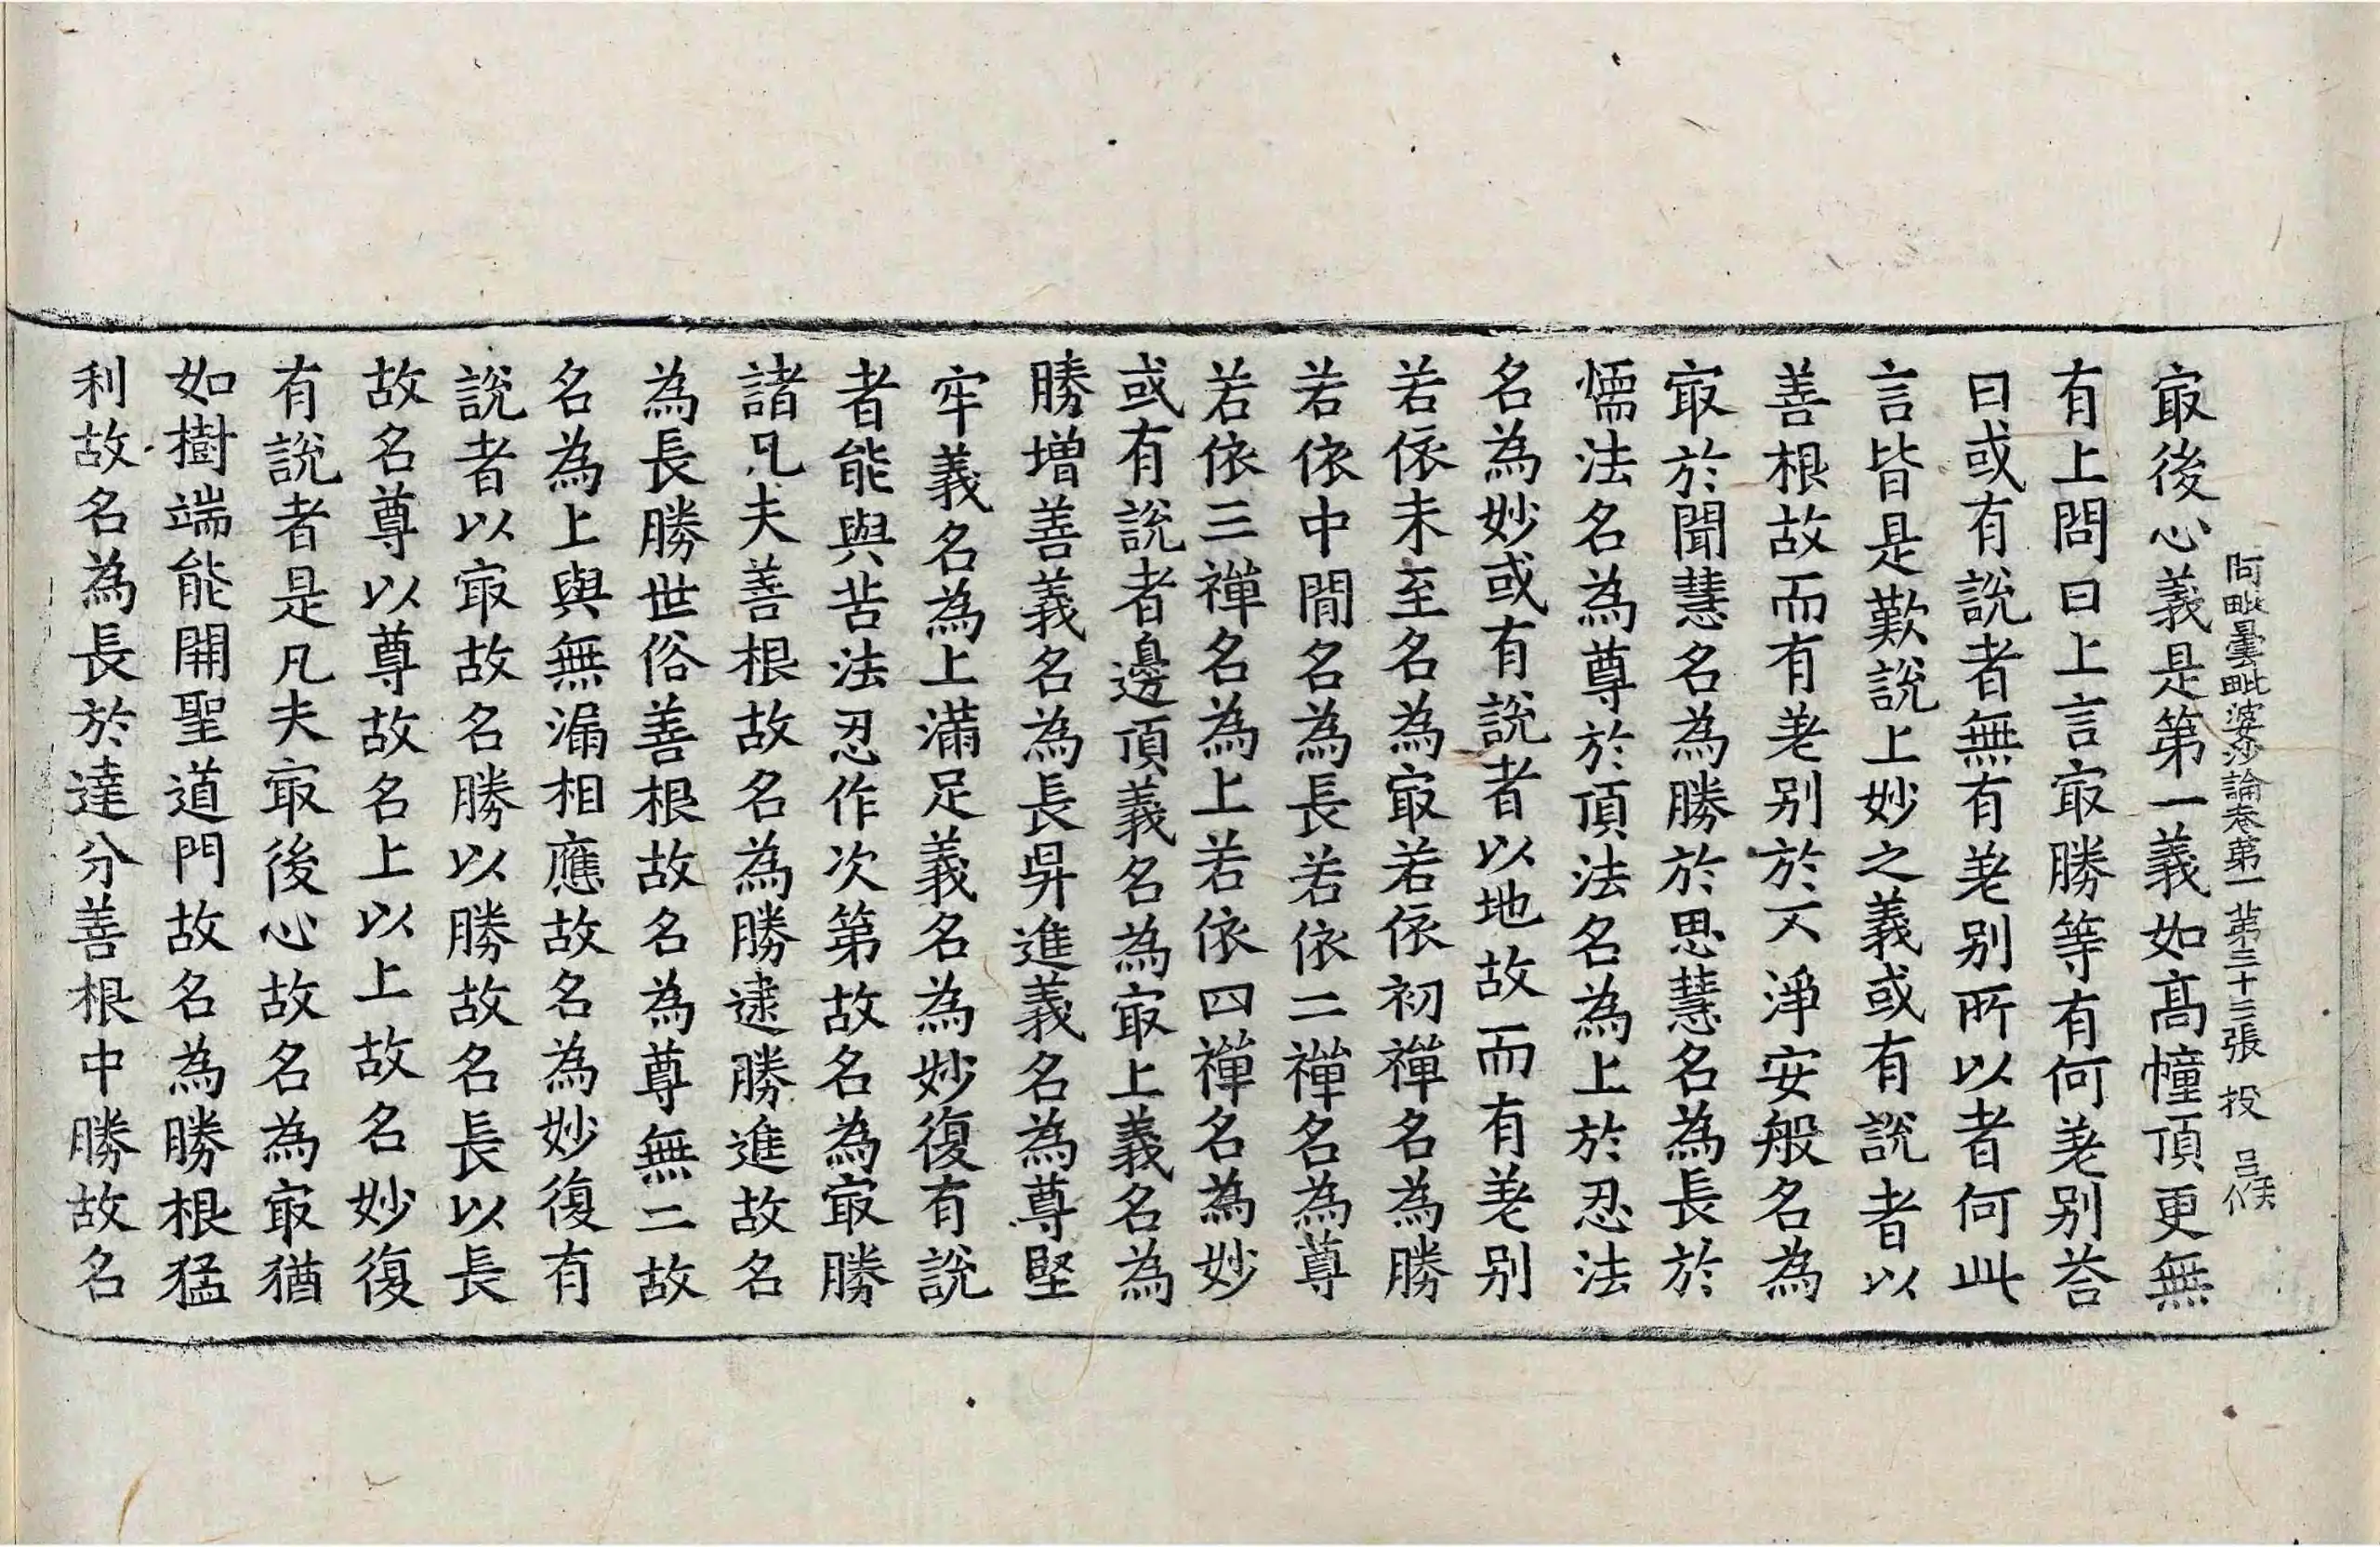 冣後心義是第一義如髙幢頂更無
阿毗曇毗婆沙論卷第一 第三十三張 投 吕候
有上問曰上言冣勝等有何差别荅
曰或有說者無有差别所以者何此
言皆是歎說上妙之義或有說者以
善根故而有差别於不淨安般名為
冣於聞慧名為勝於思慧名為長於
懦法名為尊於頂法名為上於忍法
名為妙或有說者以地故而有差别
若依未至名為冣若依初禪名為勝
若依中間名為長若依二禪名為尊
若依三禪名為上若依四禪名為妙
或有說者邊頂義名為冣上義名為
勝增善義名為長昇進義名為尊堅
牢義名為上滿足義名為妙復有說
者能與苦法忍作次第故名為冣勝
諸凡夫善根故名為勝逮勝進故名
為長勝世俗善根故名為尊無二故
名為上與無漏相應故名為妙復有
說者以冣故名勝以勝故名長以長
故名尊以尊故名上以上故名妙復
有說者是凡夫冣後心故名為冣猶
如樹端能開聖道門故名為勝根猛
利故名為長於達分善根中勝故名